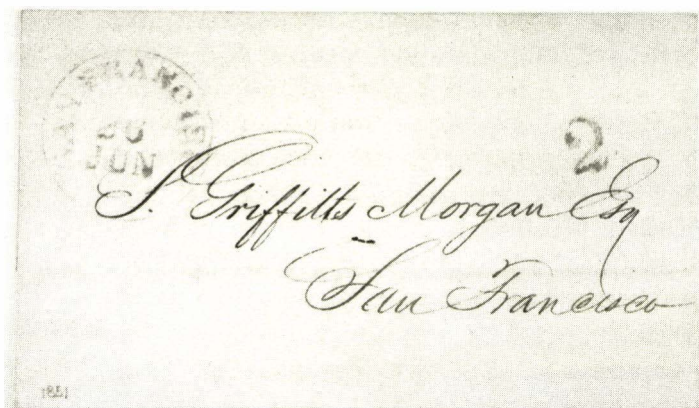 SAN FRANCISCO
30
JUN
2
S. Griffitts Morgan Esq
San Francisco
1851